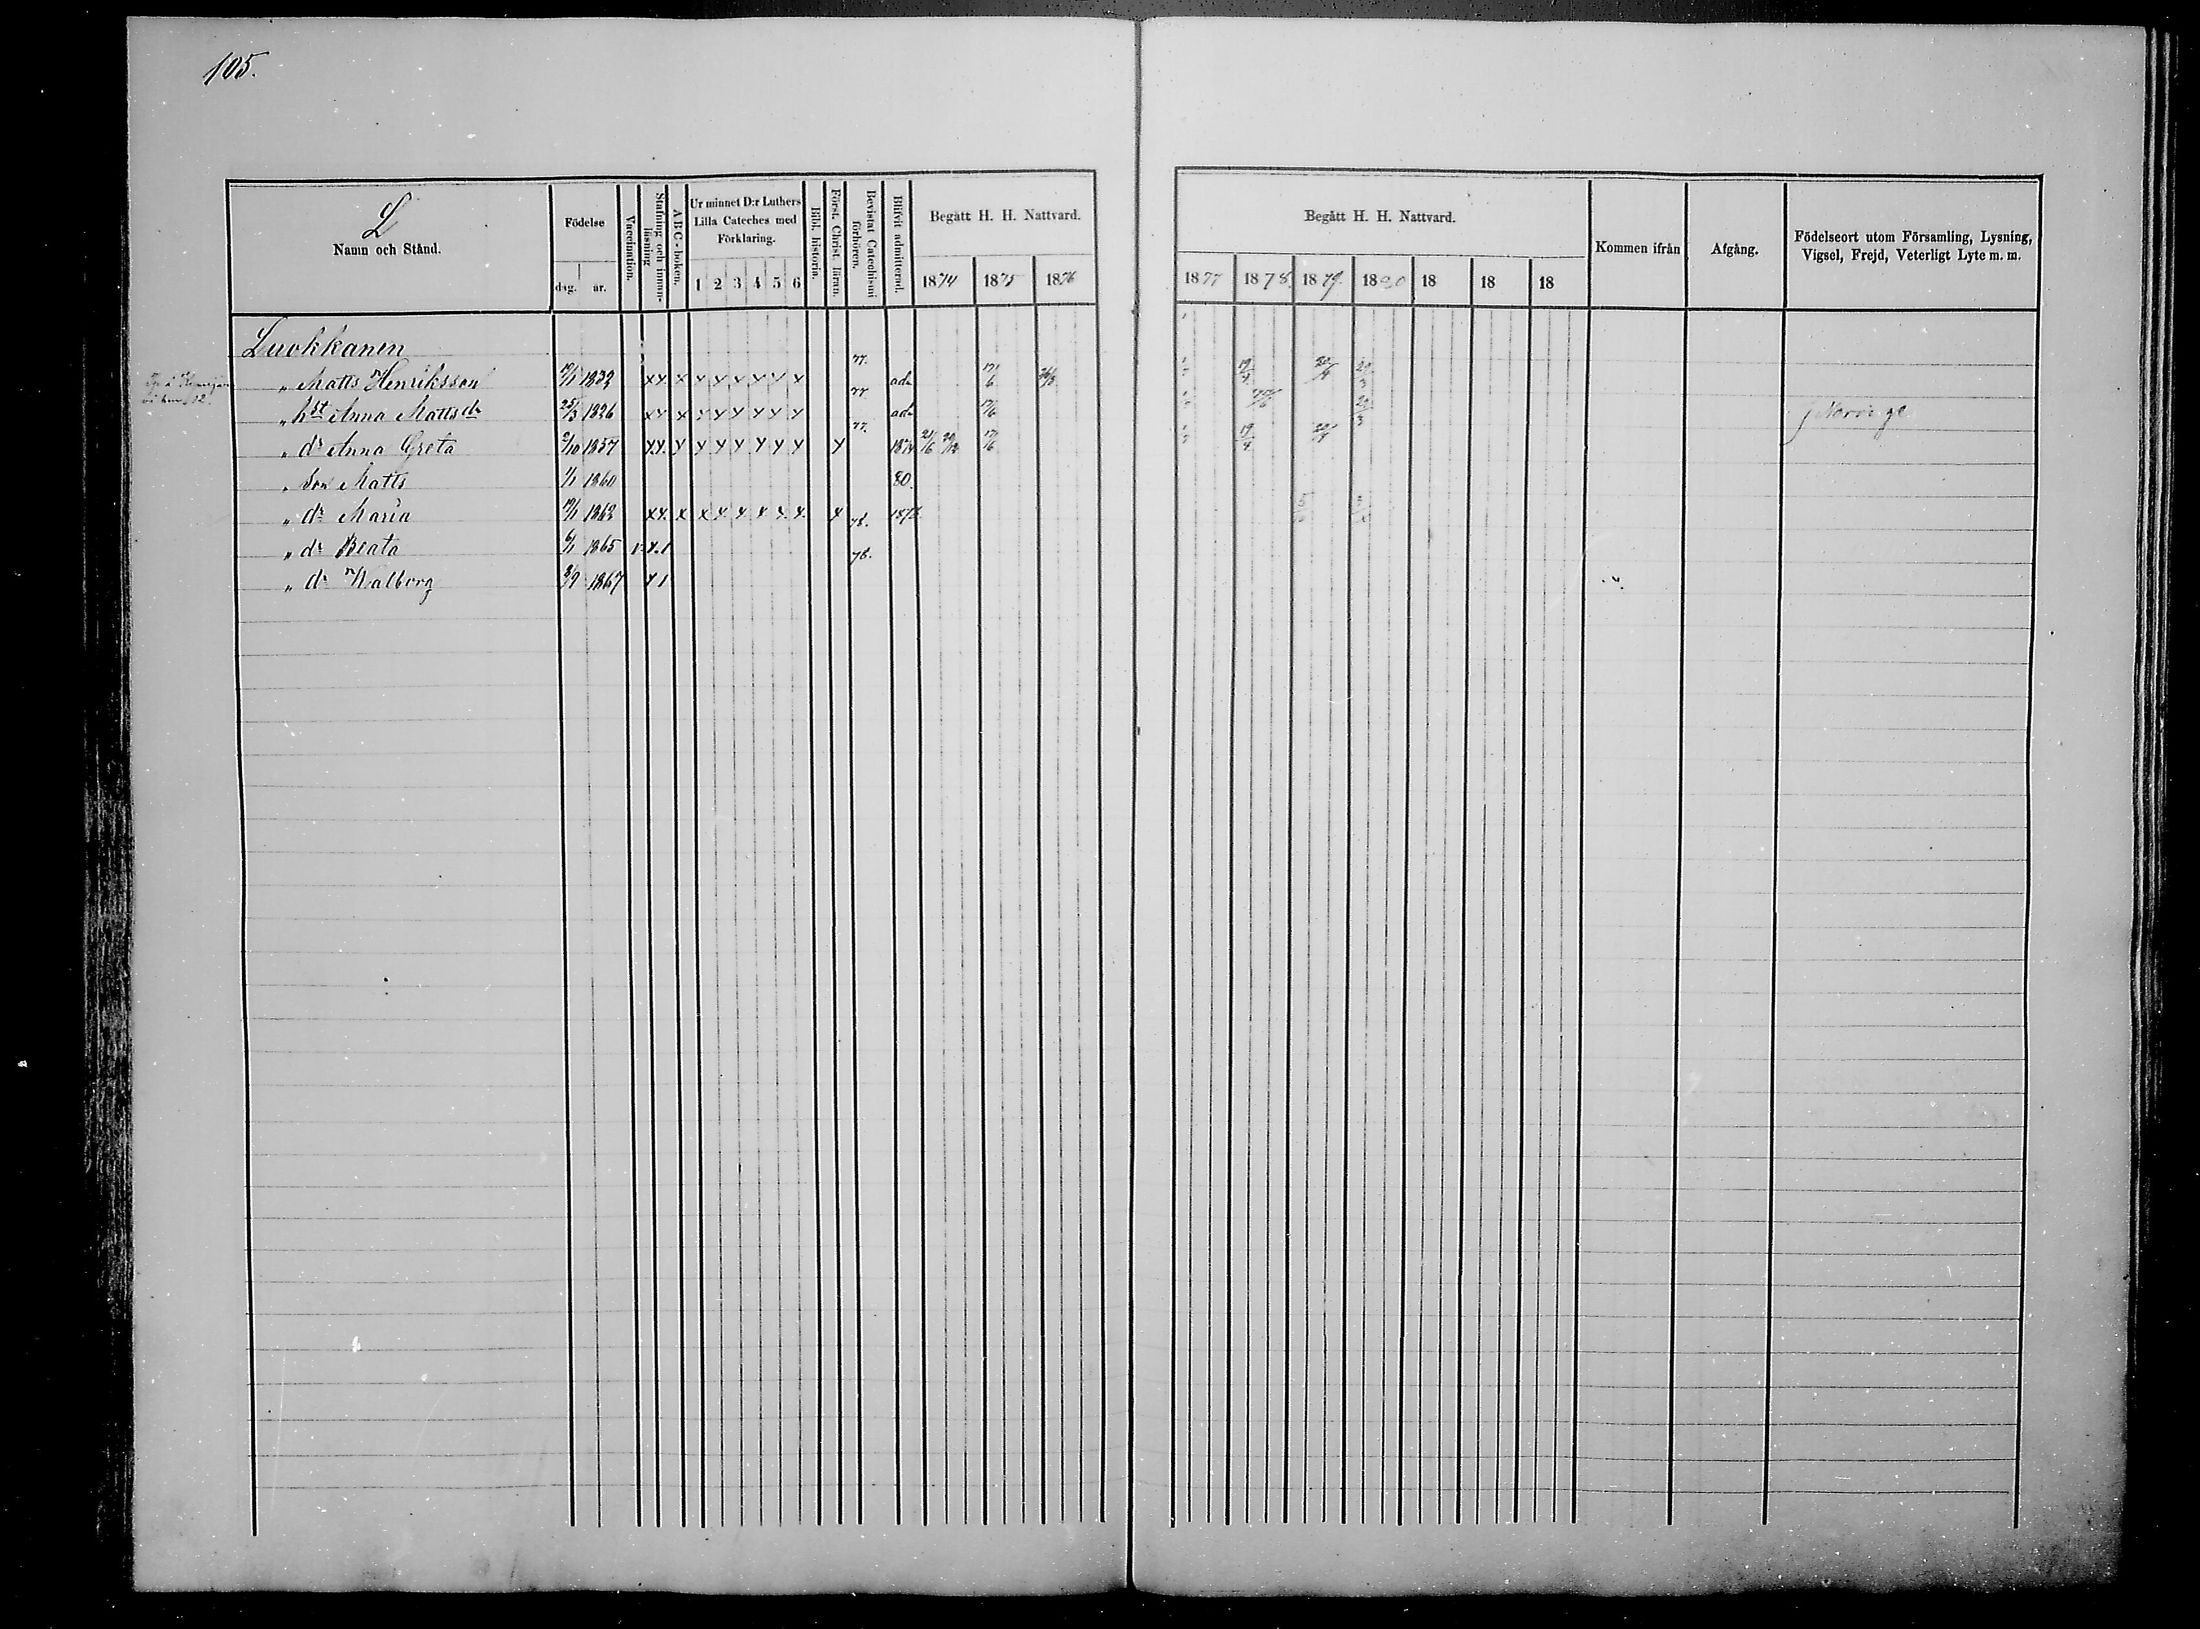 105.
L
Namn och Stånd.
Födelse
dag. år.
Vaccination.
Stafning och innan-läsning
ABC-boken.
Ur minnet D:r Luthers Lilla Cateches med Förklaring.
1 2 3 4 5 6
Bibl. historia.
Först. Christ. läran.
Bevistat Catechismi förhören.
Blifvit admitterad.
Begått H. H. Nattvard.
1874 1875 1876
Begått H. H. Nattvard.
1877 1878. 1879. 1880 18 18 18
Kommen ifrån
Afgång.
Födelseort utom Församling, Lysning, Vigsel, Frejd, Veterligt Lyte m. m.
Luokkanen
„ Matts Henriksson 1832 xx x x x x x x x 77. ad. 17/6 19/4 20/4 20/3
„ hst Anna Mattsdr 25/3 1826 xx x x x x x x x 77 ad. 17/6 20/3 i Norrige
„ dr Anna Greta 2/10 1857 xx x x x x x x x x 77. 1874 21/6 17/6 19/4 20/4
„ son Matts 1/1 1860 80.
„ dr Maria 1862 xx x x x x x x x x 78.
„ dr Beata 6/1 1865 78.
„ dr Walborg 8/9 1867